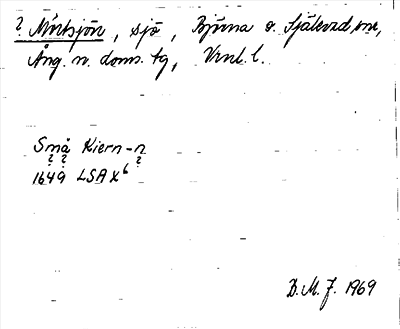 ? Mörtsjön, sjö, Björna o. Själevad snr,
Ång. n. doms. tg, Vrnl. l.
Små Kiern-n
? ? ?
1649 LSA X6
D.M.J. 1969